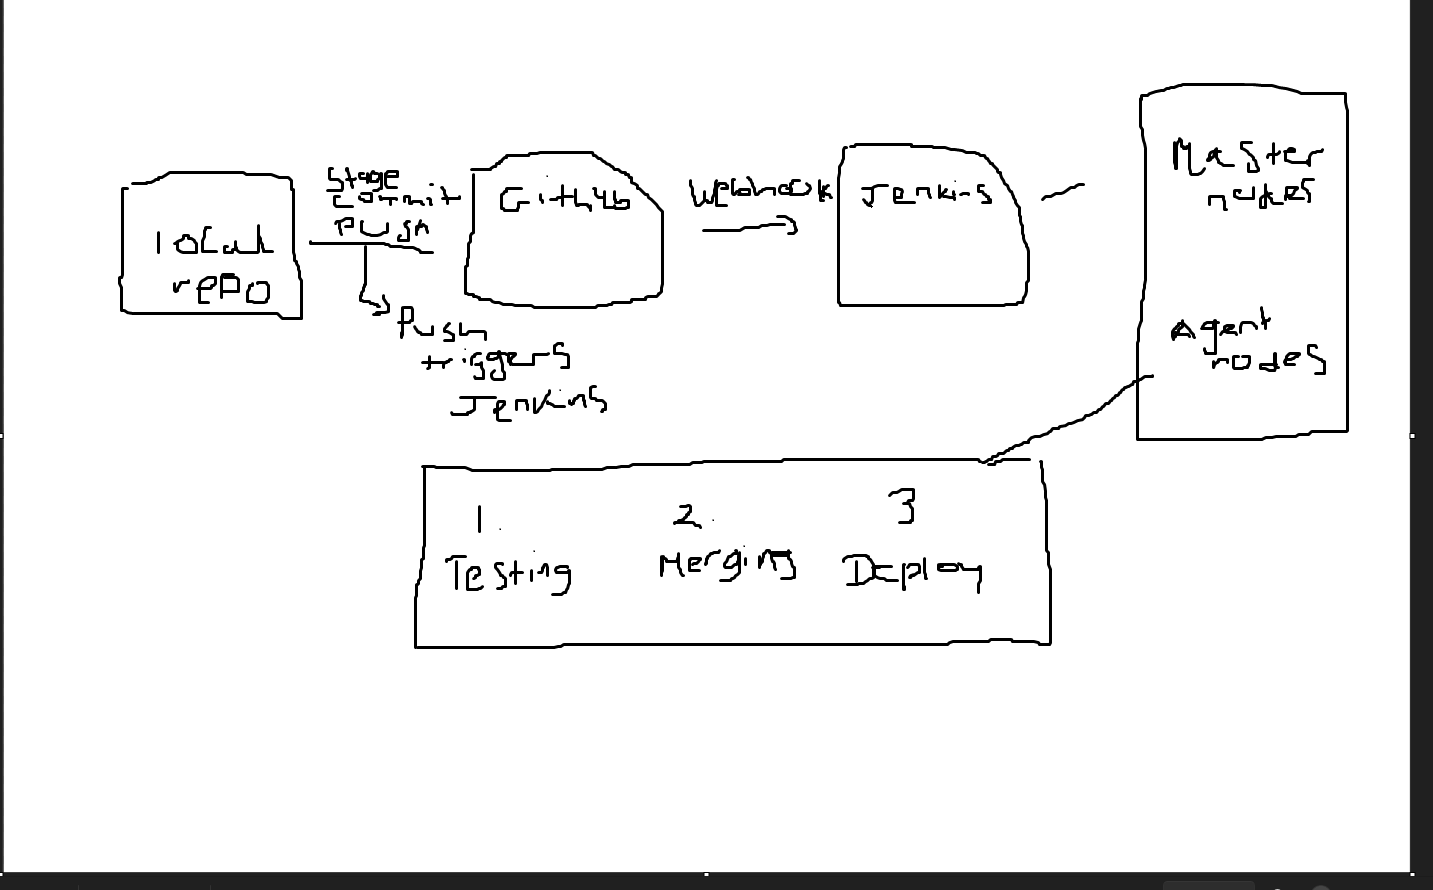 local
repo
Stage
commit
Push
Push
triggers
Jenkins
Github
Webhook
Jenkins
Master
nodes
Agent
nodes
1.
Testing
2.
Merging
3
Deploy